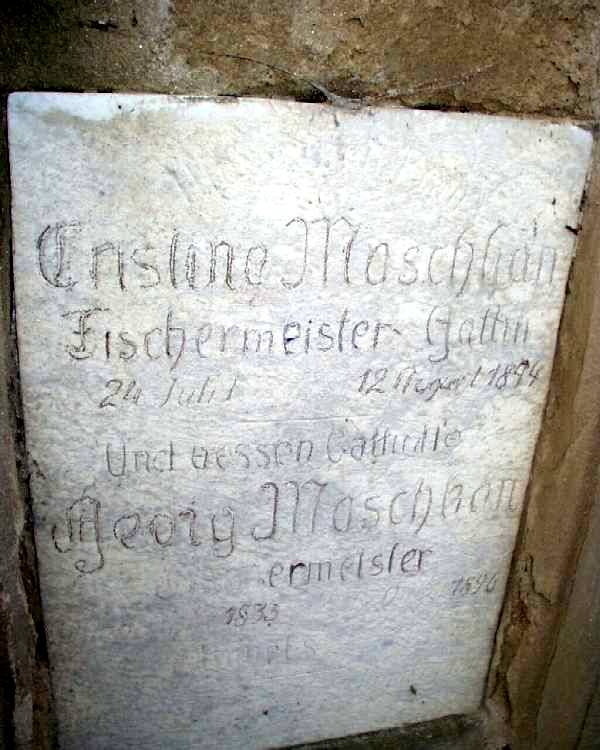 Cristina Moschhan
Fischermeister Gattin
24 Juli 12 August 1894
Und dessen
Georg Moschhan
ermeister
1833 1896